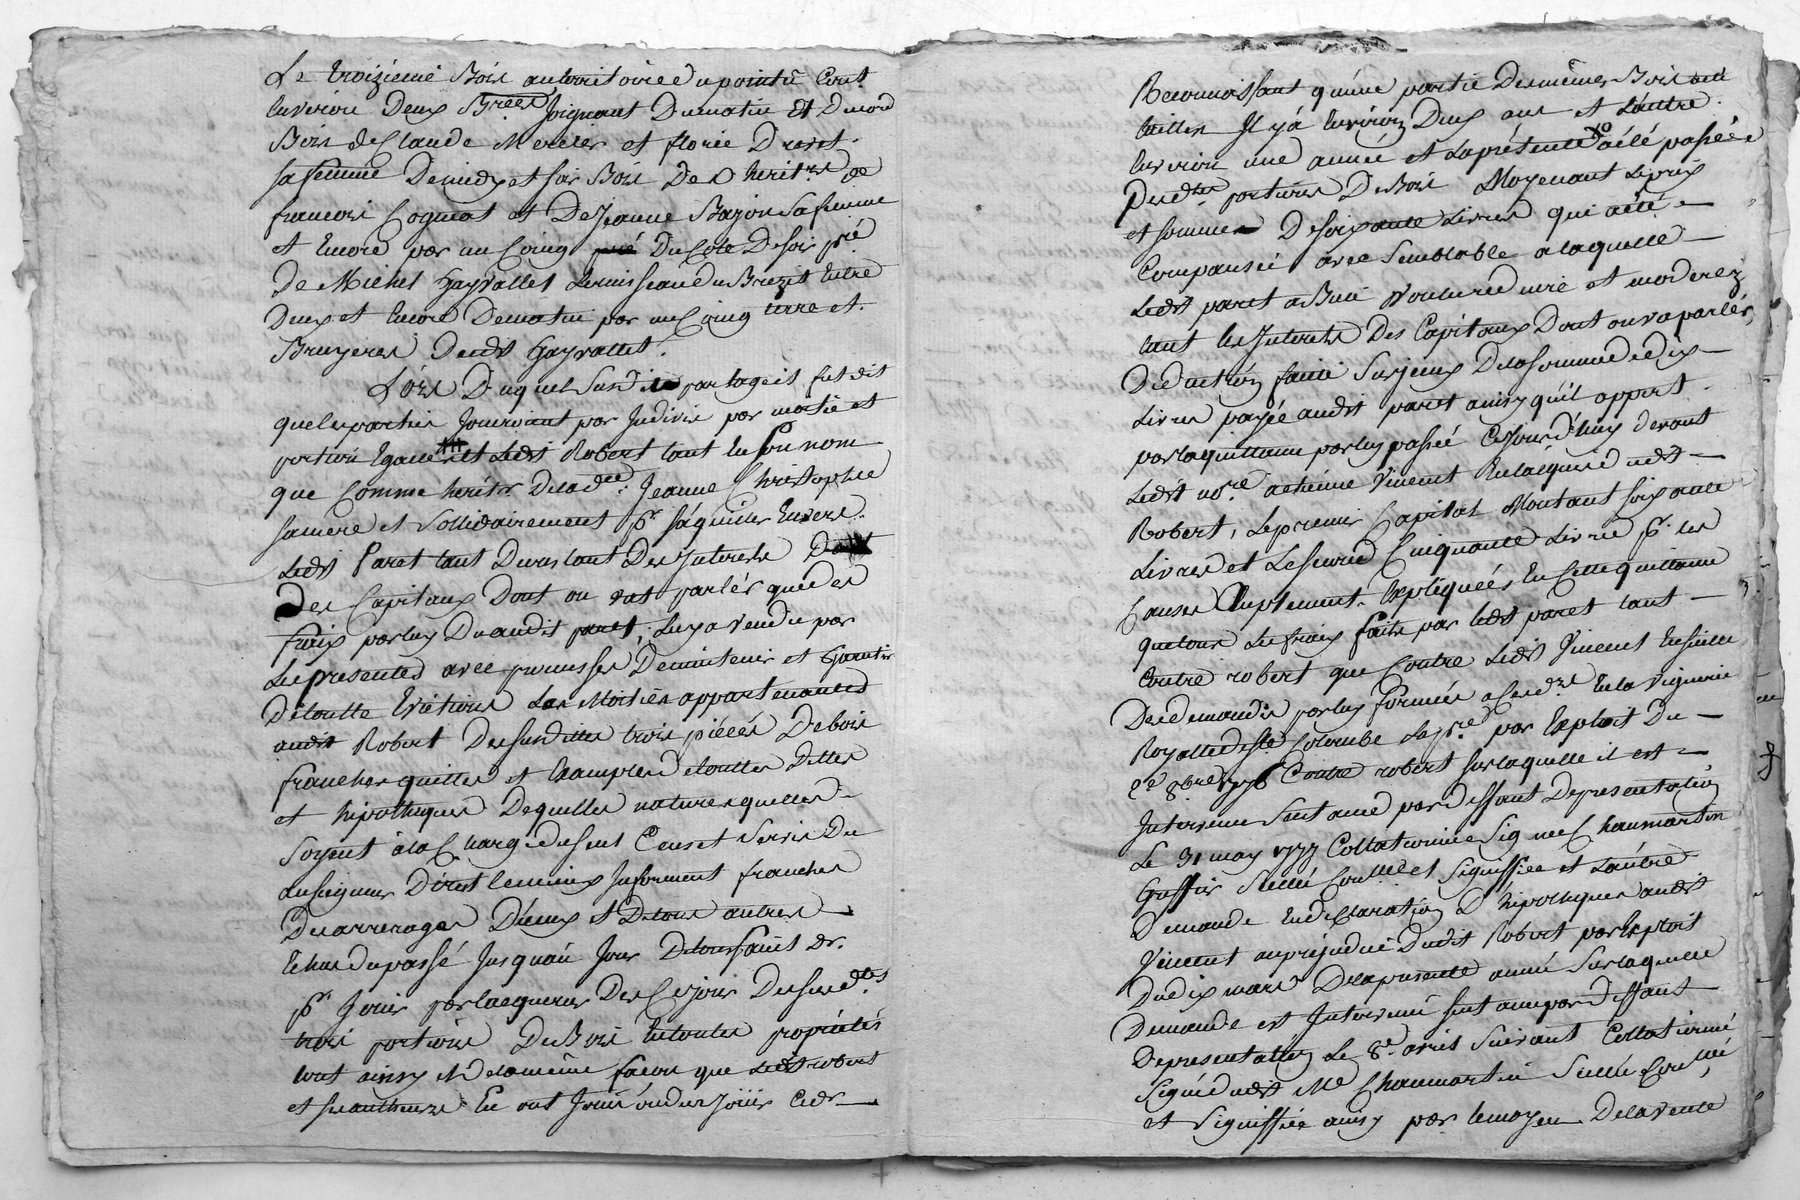 Le troizieme Bois au territoire du pointu Cont.
Environ Deux Bices Joignant Dumatin Et Dunord
Bois de Claude Mercier et florie Drevet
sa femme De midy et soir Bois De Herit.rs de
francois Cognat et De Jeanne Bajon sa femme
et Encore par un Coing Du Cote De soir pré
de Michel Gayvallet Le ruisseau du Entre
Deux et Encore De matin par un Coing terre et
Bruyeres Dudt Gayvallet.
Lors Duquel Susdit partage il fut dit
que les parties Jouiroient par Judivis par moitié et
portion Egalle et Ledt Robert tant En son nom
que Comme herit.r De lad.te Jeanne Christophle
sa mere et Sollidairement p.r s'aquiter Envers
Ledt Paret tant Des Interets
Des Capitaux Dont on vat parler que des
fraix par luy Du audit paret, Luy a vendu par
Les presentes avec promesse De maintenir et Garantir
De toutte Evictions Les Moitiés appartenantes
audt Robert Des susdittes trois piéces De bois
franches quittes et Exampte de touttes Dettes
et hipotheques De quelles natures quelles
Soyent à la Charge du seul Cens et Servis Du
au seigneur Direct Le mieux Informent franches
Des arrerages D'iceux et De tous autres
Echus du passé Jusqu'au Jour De toussaint dr.
p.r Jouir par l'aquereur Des Ce jour Des sus d.tes
trois portions De Bois En toutes propriétés
tout ainsy et De la même façon que Ledt robert
et ses autheurs En ont Joui ou du Joüir Cedr
Reconnoissant qu'une partie Des mêmes Bois
taillés Il y a Environ Deux ans et L'autre
Environ une année et La présente a été passée
Des d.tes portions De Bois Moyenant Le prix
et somme De soixante Livres qui a été
Compansée avec Semblable a laquelle
Ledt paret a Bien voulu reduire et moderer
tant les Interets Des Capitaux Dont on va parler,
Deduction faite Sur jceux De la somme de dix
Livres payée audt paret ainsy qu'il appert
par la quittance par luy passée Cejourd'huy devant
Ledt no.re a etienne Vincent En l'aquit dudt
Robert, Le premier Capital Montant soixante
Livres et Le second Cinquante Livres p.r les
Causes Amplement Expliquées En Cette quittance
que tous Les fraix faits par Ledt paret tant
Contre robert que Contre Ledt Vincent En suitte
Des demandes par luy formées a Ces d.rs En la viguerie
Royalle de Ste Colombe La p.re par Exploit Du
8bre 1776 Contre robert sur laquelle il est
Intervenu Sentance par deffaut De presentation
Le 31 may 1777 Collationnée Signée Chaumartin
Greffier Scellé Conllé et Signiffiée et L'autre
Demande En declaration D'hipotheques audt
Vincent au prejudice Dudit Robert par Exploit
Du dix mars De la presente année Sur laquelle
Demande est Intervenu sentance par deffaut
De presentation Le 8.e avril Suivant Collationné
Signé dudt Me Chaumartin Scellé Con.lé
et Signiffiée ainsy par le moyen De la vente